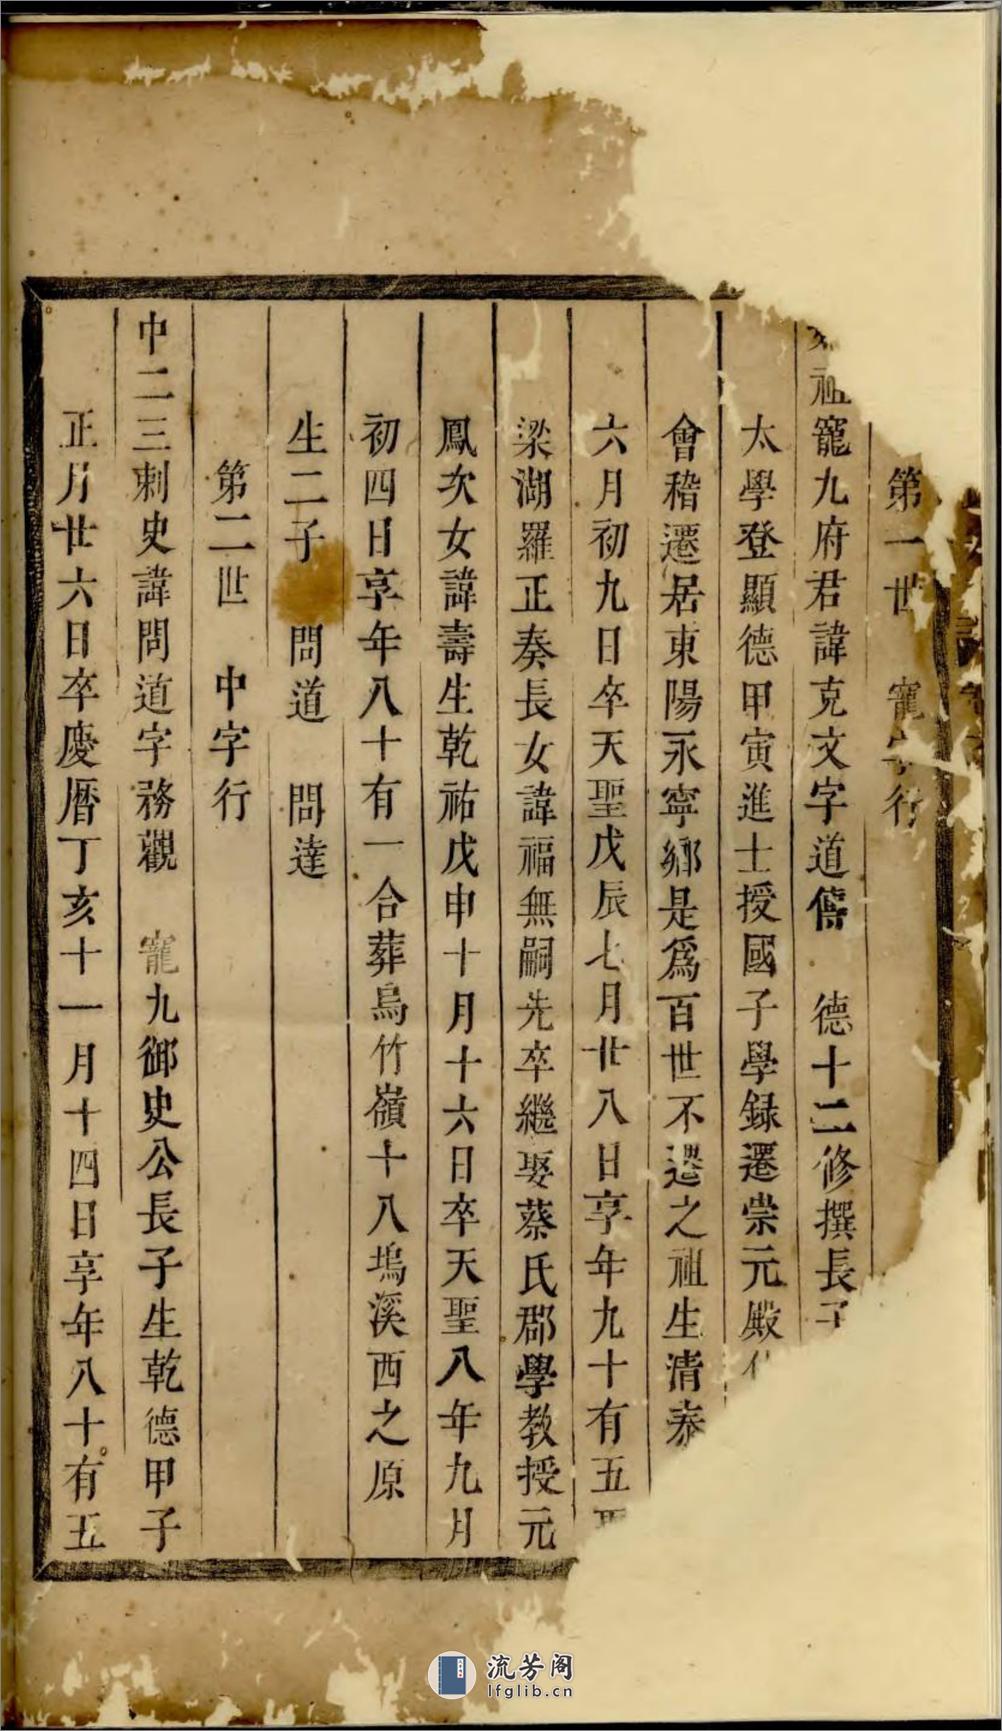 第一世　寵字行
祖寵九府君諱克文字道僑　德十二修撰長子
太學登顯德甲寅進士授國子學録遷崇元殿
會稽遷居東陽永寧鄉是爲百世不遷之祖生清泰
六月初九日卒天聖戊辰七月廿八日享年九十有五
梁湖羅正奏長女諱福無嗣先卒繼娶蔡氏郡學教授元
鳳次女諱壽生乾祐戊申十月十六日卒天聖八年九月
初四日享年八十有一合葬烏竹嶺十八塢溪西之原
生二子　問道　問達
第二世　中字行
中二三刺史諱問道字務觀　寵九御史公長子生乾德甲子
正月廿六日卒慶曆丁亥十一月十四日享年八十有五
流芳阁
lfglib.cn